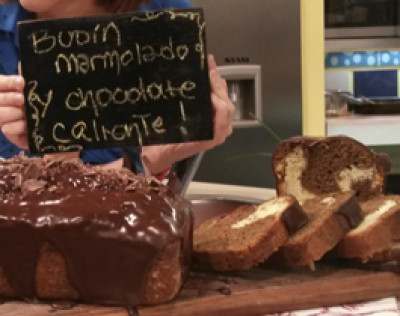 Budín
marmolado
y chocolate
caliente!